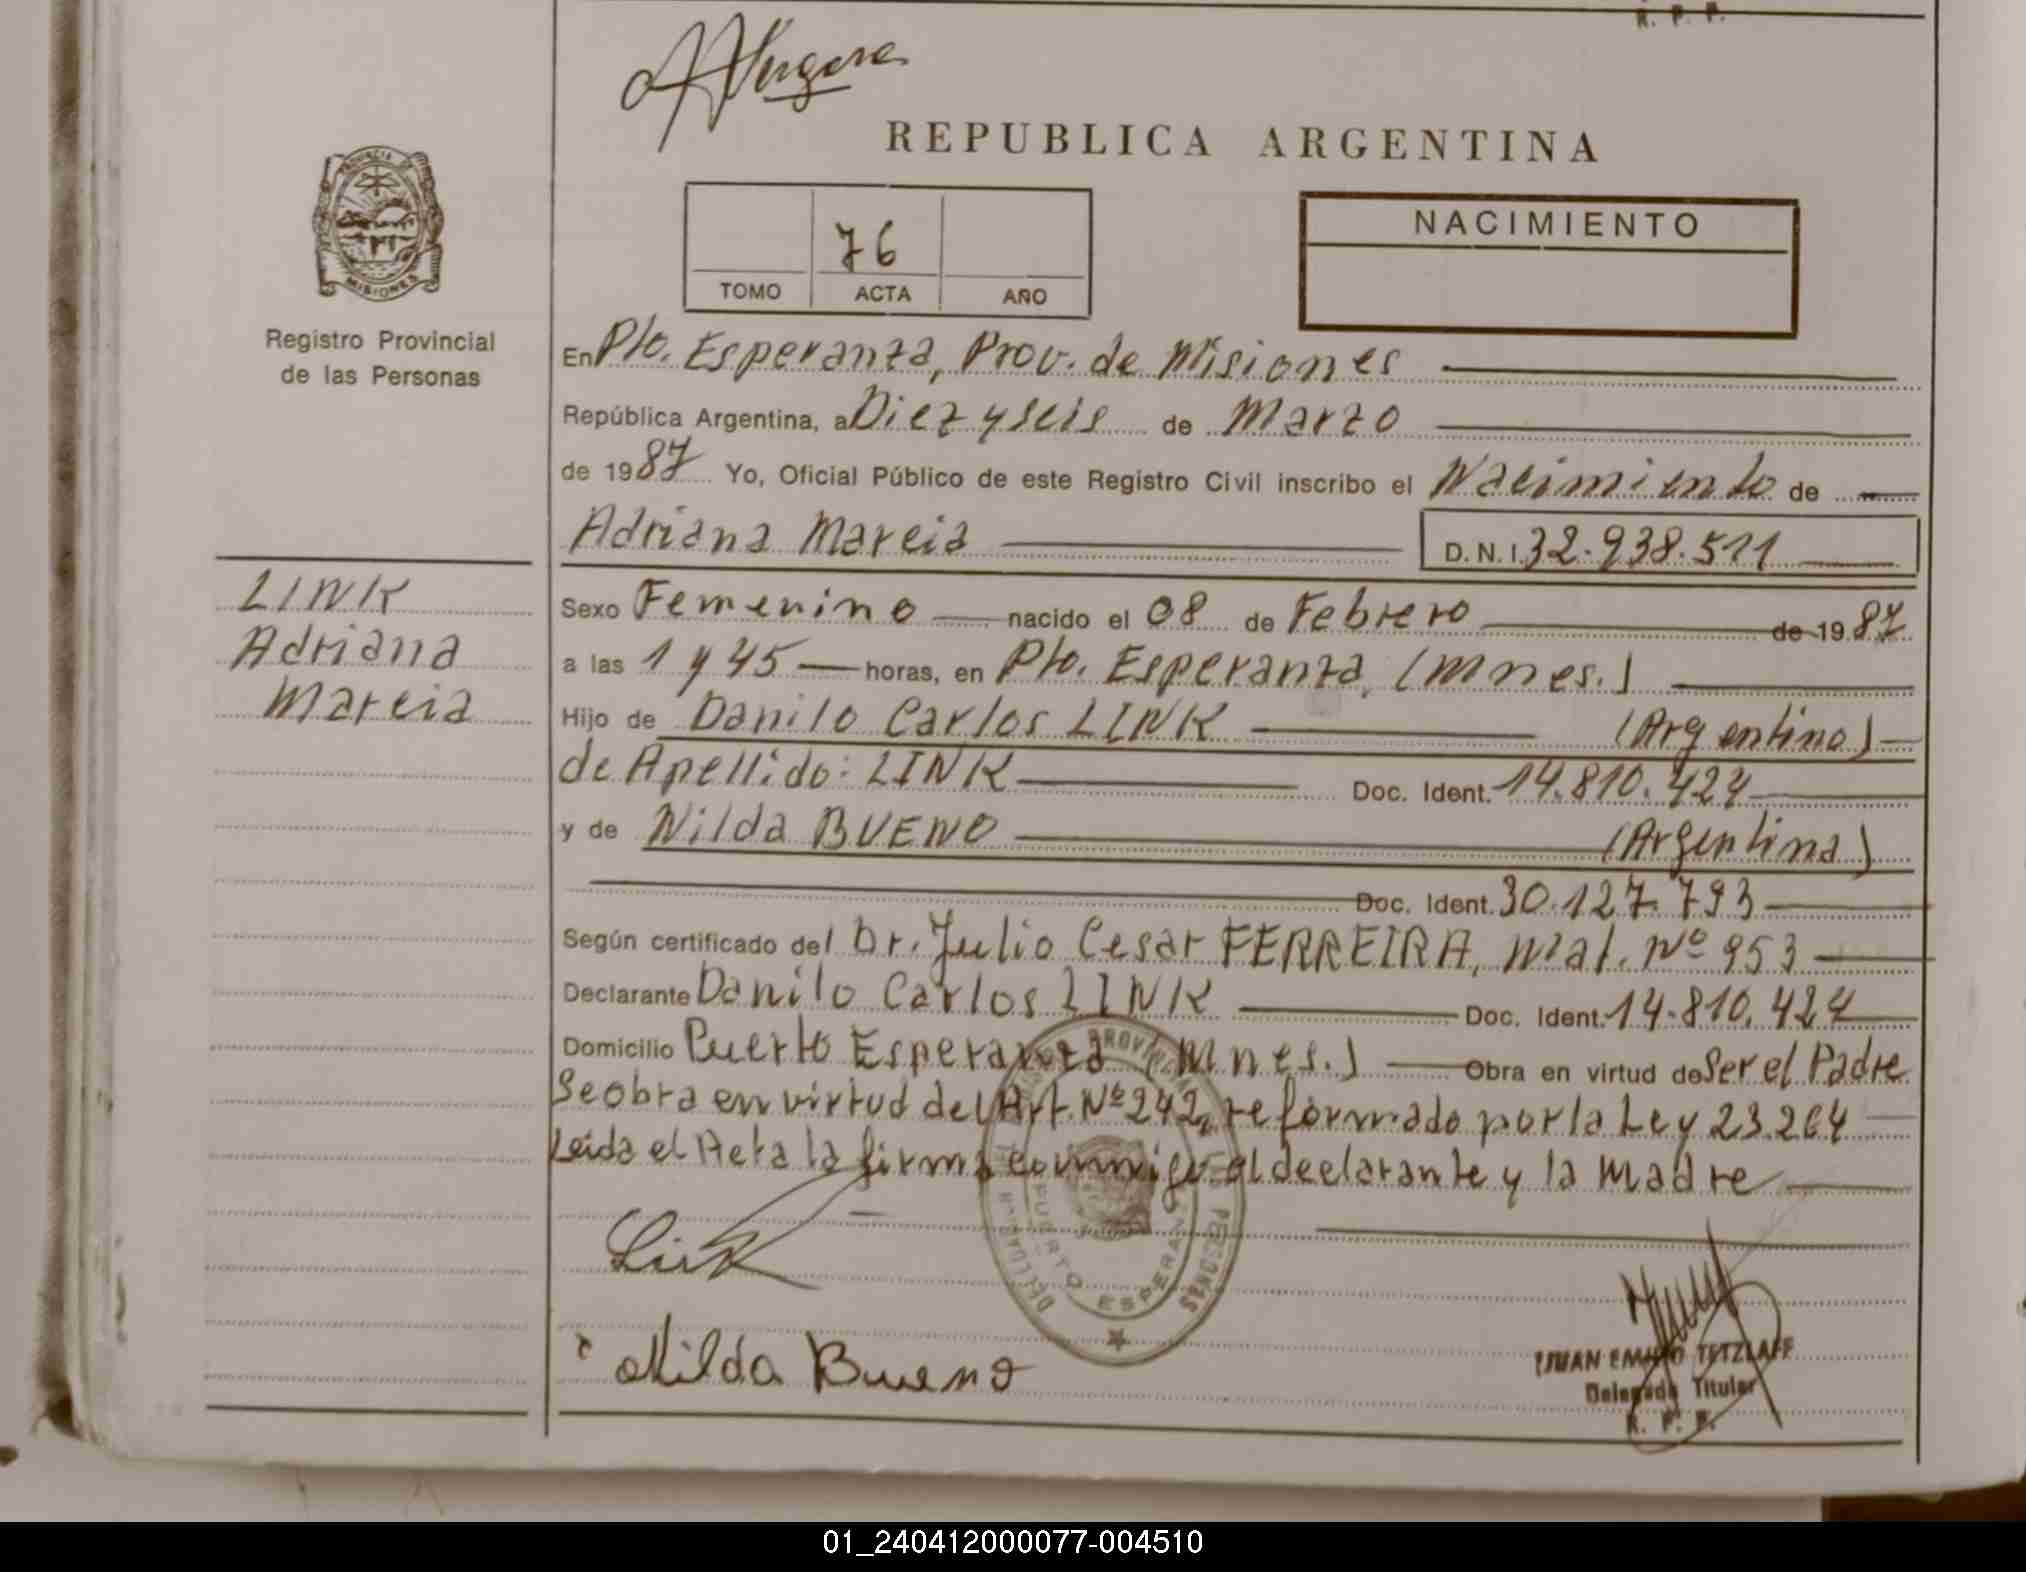 R. P. P.
Vergara
REPUBLICA ARGENTINA
PROVINCIA DE
MISIONES
Registro Provincial
de las Personas
76
TOMO ACTA AÑO
NACIMIENTO
En Pto. Esperanza, Prov. de Misiones
República Argentina, a Diez y seis de Marzo
de 1987 Yo, Oficial Público de este Registro Civil inscribo el Nacimiento de
Adriana Marcia D.N.I. 32.938.511
LINK
Adriana
Marcia
Sexo Femenino nacido el 08 de Febrero de 1987
a las 1 y 45 horas, en Pto. Esperanza, (Mnes.)
Hijo de Danilo Carlos LINK (Argentino)
de Apellido: LINK Doc. Ident. 14.810.424
y de Nilda BUENO (Argentina)
Doc. Ident. 30.127.793
Según certificado del Dr. Julio Cesar FERREIRA, Mat. Nº 953
Declarante Danilo Carlos LINK Doc. Ident. 14.810.424
Domicilio Puerto Esperanza (Mnes.) Obra en virtud de Ser el Padre
Se obra en virtud del Art. Nº 242, reformado por la Ley 23.264
Leida el Acta la firma conmigo el declarante y la Madre
PUERTO ESPERANZA
Link
Nilda Bueno
JUAN EMILIO TETZLAFF
Delegado Titular
R. P. P.
01_240412000077-004510